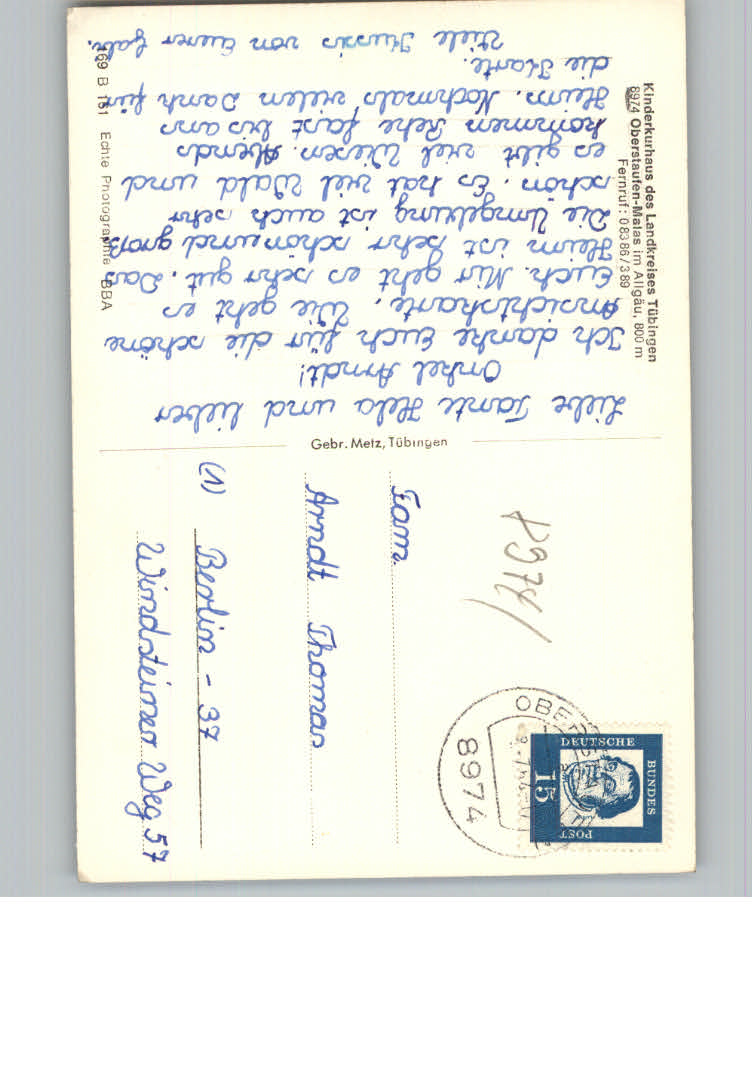 Kinderkurhaus des Landkreises Tübingen
8974 Oberstaufen-Malas im Allgäu, 800 m
Fernruf: 08386/389
Liebe Tante Hela und lieber
Onkel Arndt!
Ich danke Euch für die schöne
Ansichtskarte. Wie geht es
Euch. Mir geht es sehr gut. Das
Heim ist sehr schön und groß
Die Umgebung ist auch sehr
schön. Es hat viel Wald und
es gibt viel Wiesen. Abends
kommen Rehe fast bis ans
Heim. Nochmals vielen Dank für
die Karte.
Viele Kussis von Eurer Gabi.
169 B 151 Echte Photographie BBA
Gebr. Metz, Tübingen
8974
8974
DEUTSCHE
BUNDES
POST
15
Fam.
Arndt Thomas
(1) Berlin - 37
Windsteiner Weg 57